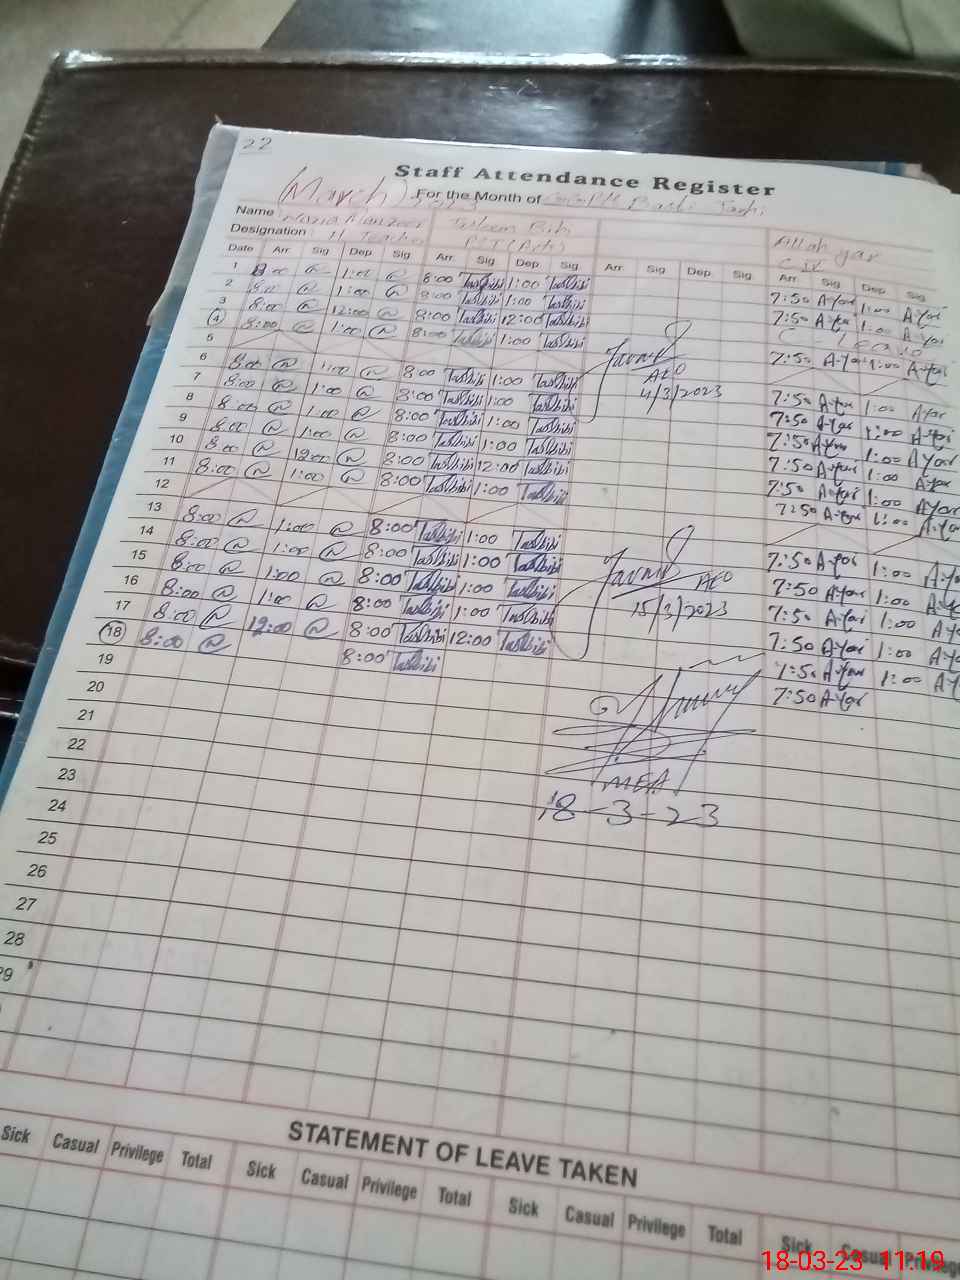 22
Staff Attendance Register
(March) For the Month of
Name Nazia Manzoor Allah yar
Designation : H Teacher PST (Arts)
Date Arr. Sig Dep Sig Arr. Sig Dep Sig Arr Sig Dep Sig Arr Sig Dep Sig
1 8:00 1:00 8:00 Tasbibi 1:00 Tasbibi 7:50 A-Yar 1:00 A-Yar
2 8:00 1:00 8:00 Tasbibi 1:00 Tasbibi 7:50 A-Yar 1:00 A-Yar
3 8:00 12:00 8:00 Tasbibi 12:00 Tasbibi C-Leave
4 8:00 1:00 8:00 Tasbibi 1:00 Tasbibi 7:50 A-Yar 1:00 A-Yar
5
6 8:00 1:00 8:00 Tasbibi 1:00 Tasbibi AEO 7:50 A-Yar 1:00 A-Yar
7 8:00 1:00 8:00 Tasbibi 1:00 Tasbibi 4/3/2023 7:50 A-Yar 1:00 A-Yar
8 8:00 1:00 8:00 Tasbibi 1:00 Tasbibi 7:50 A-Yar 1:00 A-Yar
9 8:00 1:00 8:00 Tasbibi 1:00 Tasbibi 7:50 A-Yar 1:00 A-Yar
10 8:00 12:00 8:00 Tasbibi 12:00 Tasbibi 7:50 A-Yar 1:00 A-Yar
11 8:00 1:00 8:00 Tasbibi 1:00 Tasbibi 7:50 A-Yar 1:00 A-Yar
12
13 8:00 1:00 8:00 Tasbibi 1:00 Tasbibi 7:50 A-Yar 1:00 A-Yar
14 8:00 1:00 8:00 Tasbibi 1:00 Tasbibi AEO 7:50 A-Yar 1:00
15 8:00 1:00 8:00 Tasbibi 1:00 Tasbibi 15/3/2023 7:50 A-Yar 1:00
16 8:00 1:00 8:00 Tasbibi 1:00 Tasbibi 7:50 A-Yar 1:00
17 8:00 12:00 8:00 Tasbibi 12:00 Tasbibi 7:50 A-Yar 1:00
18 8:00 8:00 Tasbibi 7:50 A-Yar
19
20
21
22
23 MEA
24 18-3-23
25
26
27
28
29
STATEMENT OF LEAVE TAKEN
Sick Casual Privilege Total Sick Casual Privilege Total Sick Casual Privilege Total Sick Casual Privilege
18-03-23 11:19